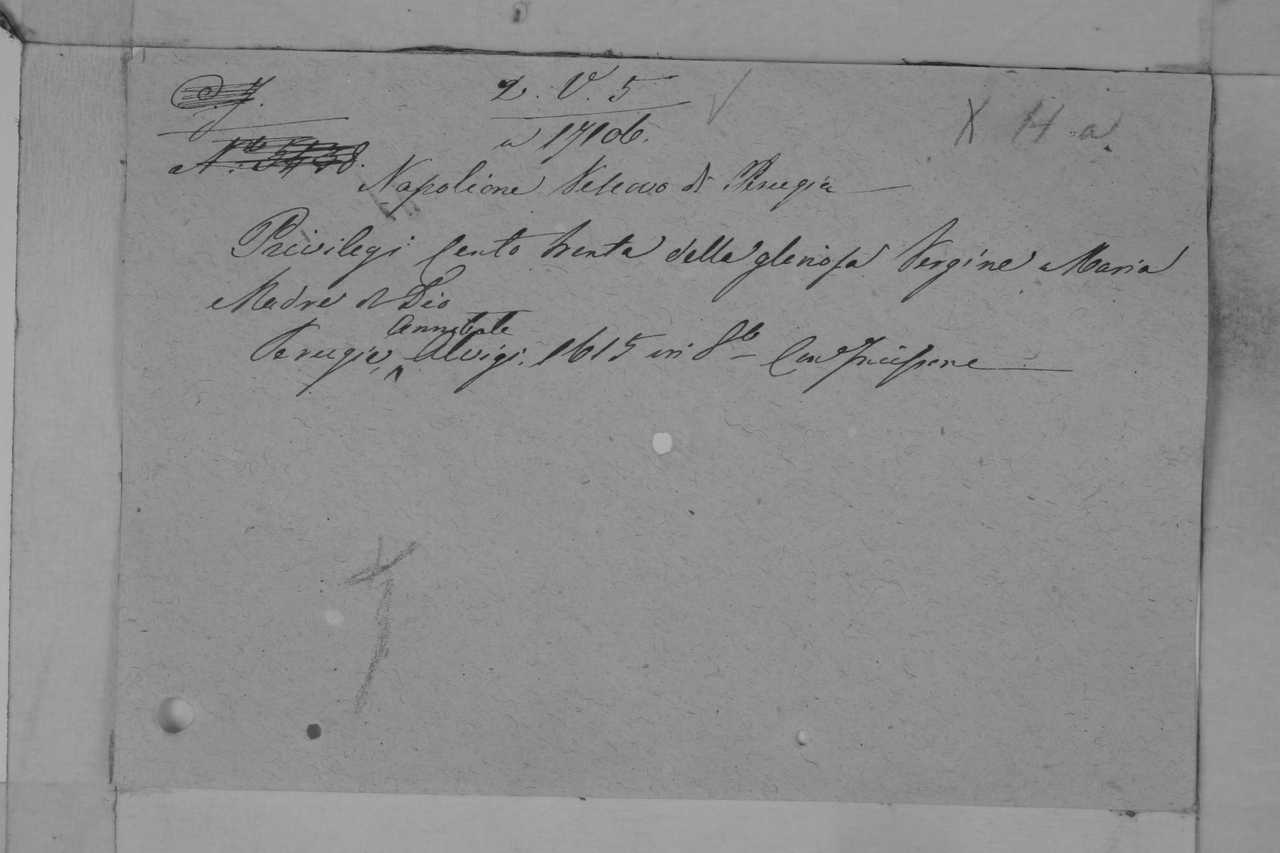 Z. V. 5
a 1710b.
X H a
Napolione Vescovo di Perugia
Privilegi Cento trenta della gloriosa Vergine Maria
Madre di Dio
Annibale
Perugia, Aluigi. 1615 in 8º Con Incisione